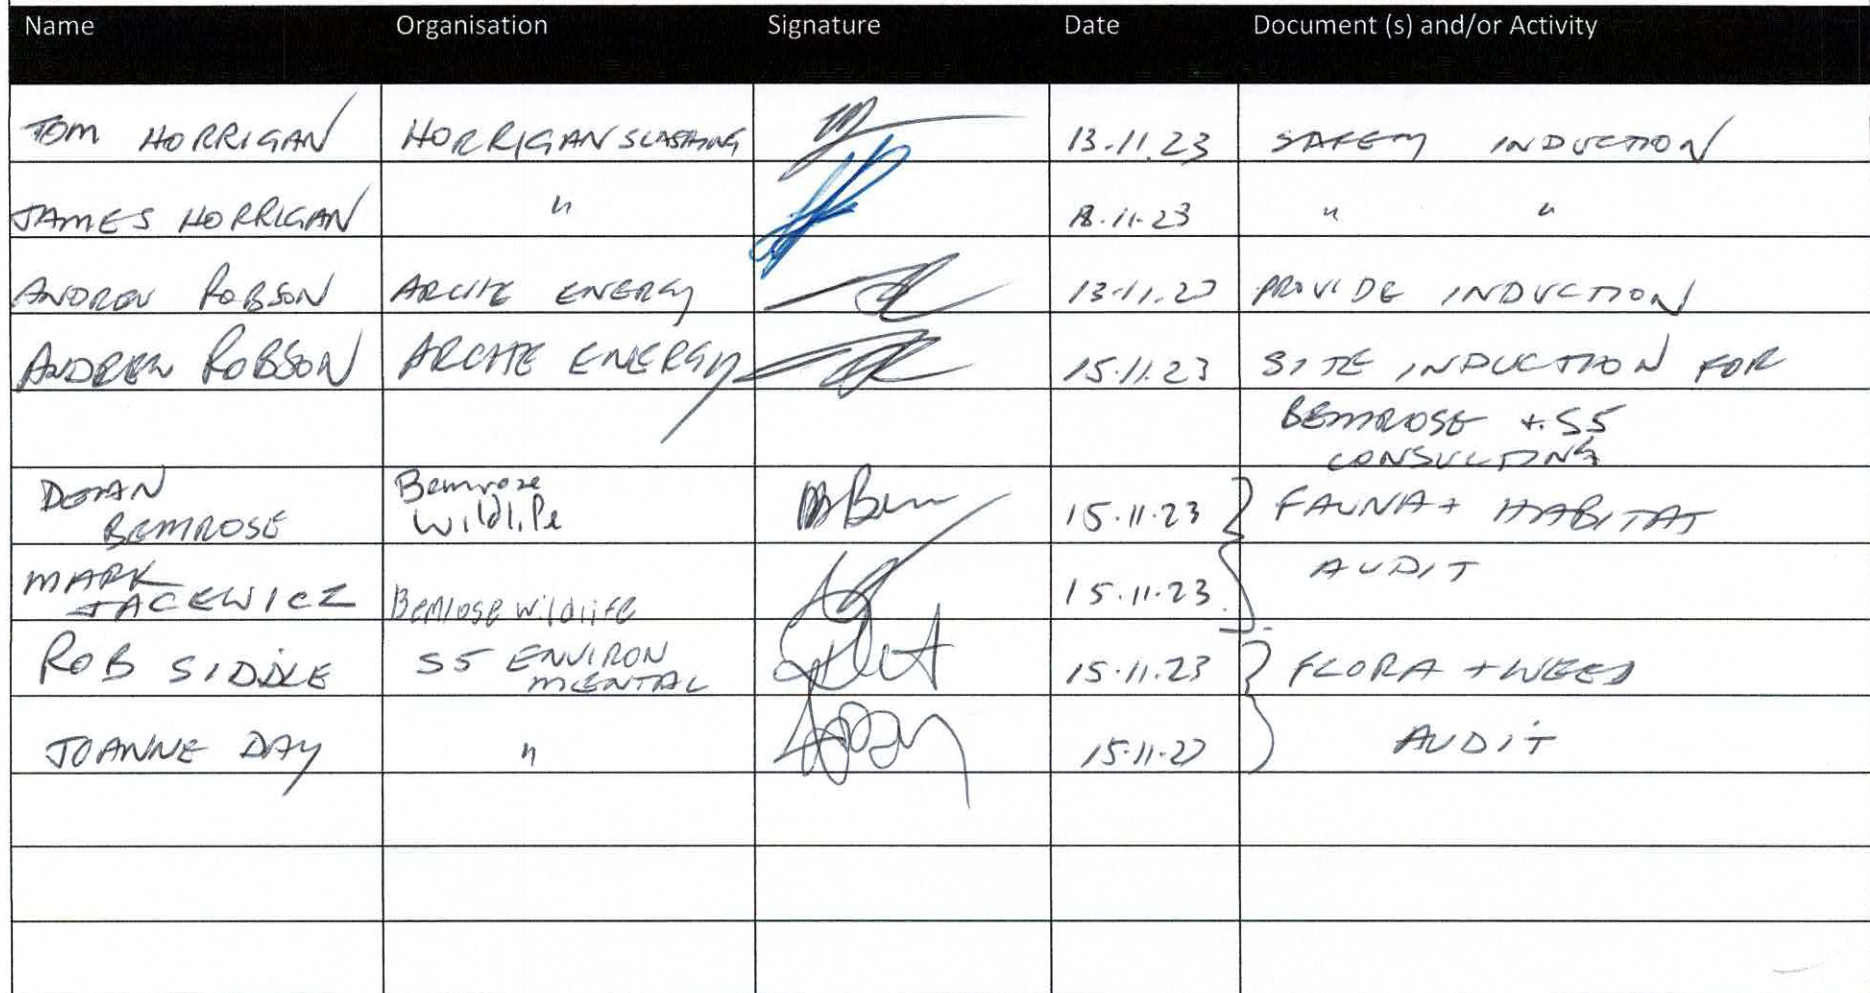 Name Organisation Signature Date Document (s) and/or Activity
TOM HORRIGAN HORRIGAN SLASHING 13.11.23 SAFETY INDUCTION
JAMES HORRIGAN " 13.11.23 " "
ANDREW ROBSON ENERGY 13.11.23 PROVIDE INDUCTION
ANDREW ROBSON ENERGY 15.11.23 SITE INDUCTION FOR
BEMROSE + S5
CONSULTING
BEMROSE Bemrose Wildlife 15.11.23 FAUNA + HABITAT
MARK JACEWICZ Bemrose Wildlife 15.11.23 AUDIT
ROB SIDDLE S5 ENVIRONMENTAL 15.11.23 FLORA + WEED
JOANNE DAY " 15.11.23 AUDIT